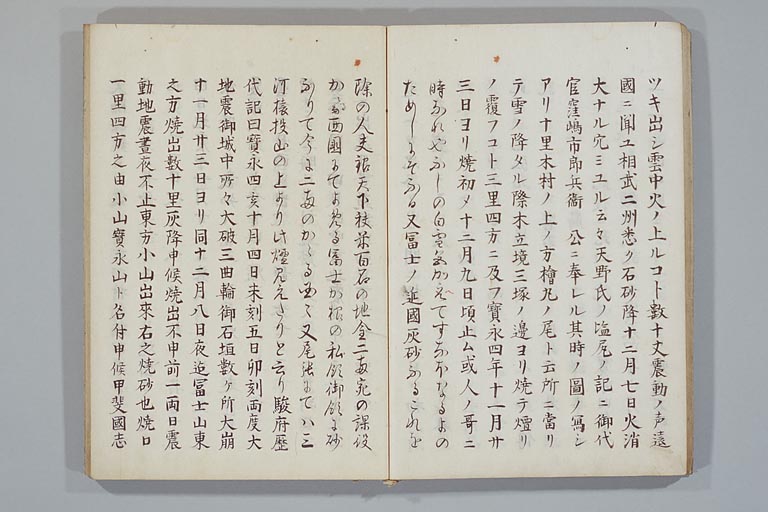 ツキ出シ雲中火ノ上ルコト数十丈震動ノ声遠
國ニ聞ユ相武二州悉ク石砂降十二月七日火消
大ナル穴ミユル云々天野氏ノ塩尻ノ記ニ御代
官窪嶋市郎兵衛 公ニ奉レル其時ノ圖ノ寫シ
アリ十里木村ノ上ノ方檜丸ノ尾ト云所ニ當リ
テ雪ノ降タル際木立境三塚ノ邊ヨリ焼テ燼リ
ノ覆フコト三里四方ニ及フ寳永四年十一月廿
三日ヨリ焼初メ十二月九日頃止ム或人ノ哥ニ
時しれやふしの白雪
ためし 又冨士ノ近國灰砂ふるこれを
除の人夫 天下 百石の地金二両宛の課役
西國 冨士 の私領御領 砂
ふりて今 二両のかゝる 又尾張 ハ三
河猿投山の上より 煙見えたりと云り駿府歴
代記曰寳永四亥十月四日未刻五日卯刻両度大
地震御城中所々大破三曲輪御石垣数ヶ所大崩
十一月廿三日ヨリ同十二月八日夜迄冨士山東
之方焼出数十里灰降申候焼出不申前一両日震
動地震晝夜不止東方小山出來右之焼砂也焼口
一里四方之由小山寳永山ト名付申候甲斐國志